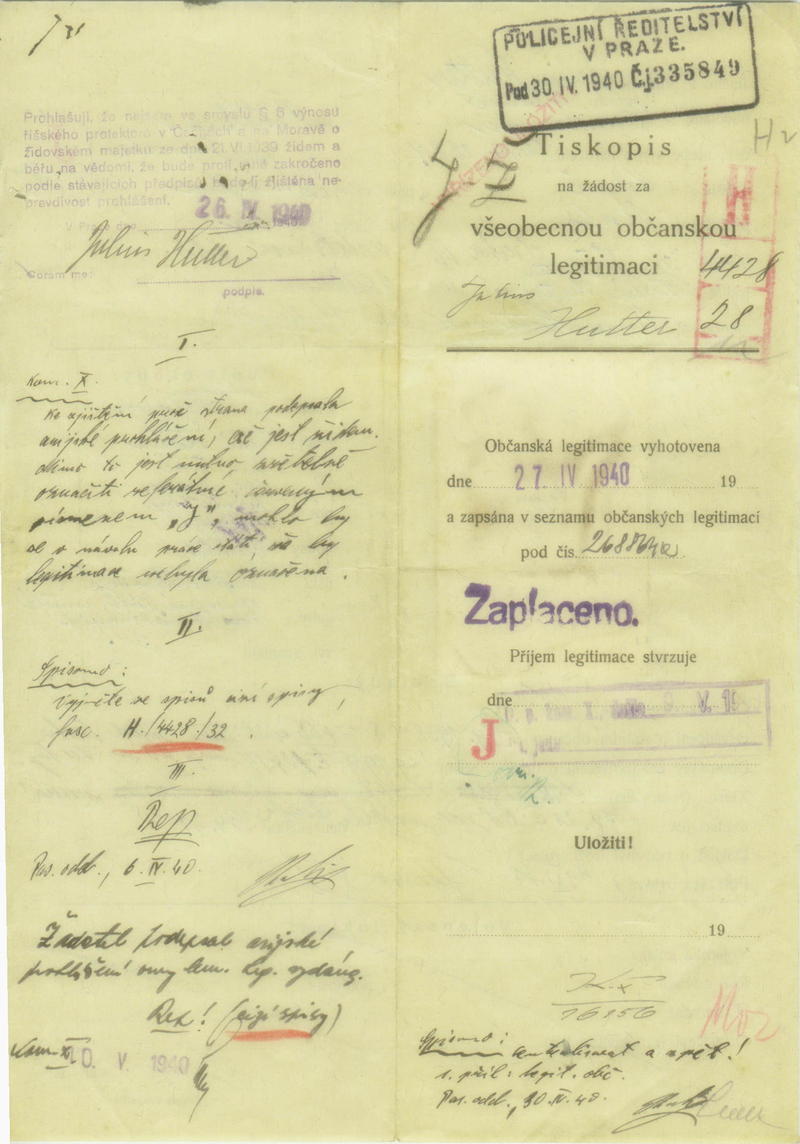 Prohlašuji, že nejsem ve smyslu § 6 výnosu
říšského protektora v Čechách a na Moravě o
židovském majetku ze dne 21. VI. 1939 židem a
béřu na vědomí, že bude proti mně zakročeno
podle stávajících předpisů, bude-li zjištěna ne-
pravdivost prohlášení.
V Praze dne 26. IV. 1940
Julius Hutter
Coram me:
podpis.
I.
Kom. X.
Ke zjištění proč strana podepsala
arijské prohlášení, ač jest židem.
Mimo to jest nutno zřetelně
označiti referátně červeným
písmenem „J“, mohlo by
se v návalu práce státi, že by
legitimace nebyla označena.
II.
Spisovno:
vyjměte ze spisů spisy,
fasc. H./4428/32.
III.
Rep
Pas. odd., 6. IV. 40.
Žadatel podepsal arijské
prohlášení
Rex! spisy)
Kom. X.
10. V. 1940
POLICEJNÍ ŘEDITELSTVÍ
V PRAZE.
Pod 30. IV. 1940 Č.j. 335849
Tiskopis
na žádost za
všeobecnou občanskou
legitimaci
H
4428
28
Julius
Hutter
Občanská legitimace vyhotovena
dne 27. IV 1940 19
a zapsána v seznamu občanských legitimací
pod čís.
Zaplaceno.
Příjem legitimace stvrzuje
dne
J
Uložiti!
19
K. X
16156
Spisovno: a zpět!
s příl: legit. obč.
Pas. odd., 30. IV. 40.